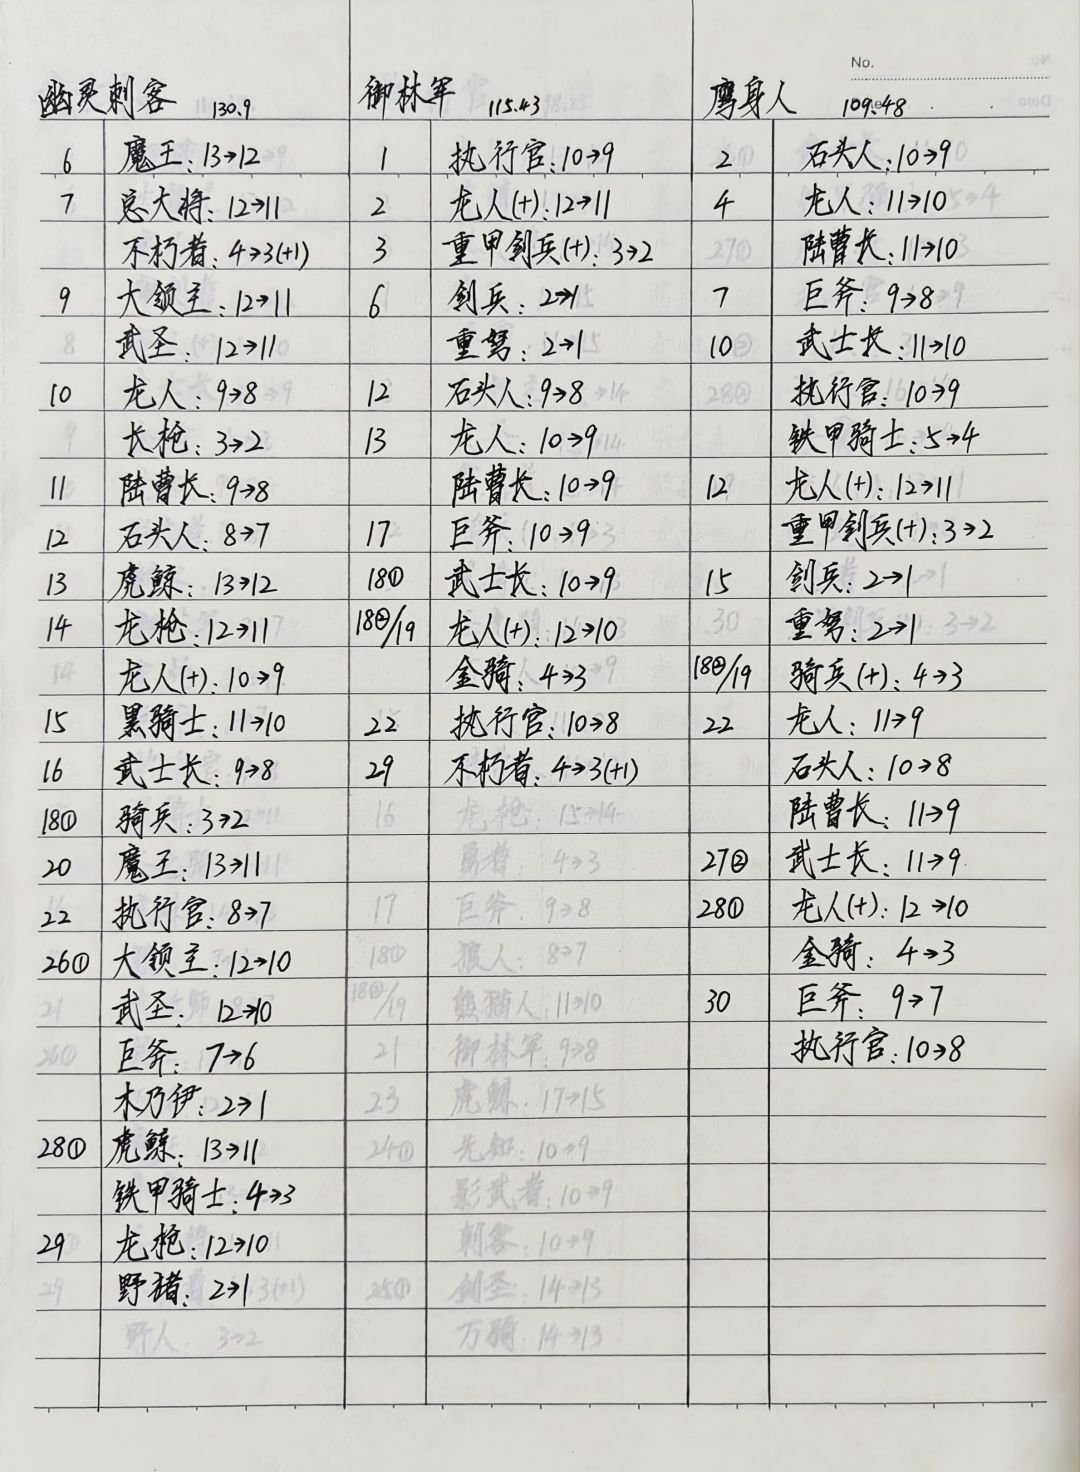 No.
幽灵刺客 130.9
6 魔王: 13→12
7 总大将: 12→11
不朽者: 4→3(+1)
9 大领主: 12→11
武圣: 12→11
10 龙人: 9→8
长枪: 3→2
11 陆曹长: 9→8
12 石头人: 8→7
13 虎鲸: 13→12
14 龙枪: 12→11
龙人(+): 10→9
15 黑骑士: 11→10
16 武士长: 9→8
18① 骑兵: 3→2
20 魔王: 13→11
22 执行官: 8→7
26① 大领主: 12→10
武圣: 12→10
巨斧: 7→6
木乃伊: 2→1
28① 虎鲸: 13→11
铁甲骑士: 4→3
29 龙枪: 12→10
野猪: 2→1
御林军 115.43
1 执行官: 10→9
2 龙人(+): 12→11
3 重甲剑兵(+): 3→2
6 剑兵: 2→1
重弩: 2→1
12 石头人: 9→8
13 龙人: 10→9
陆曹长: 10→9
17 巨斧: 10→9
18① 武士长: 10→9
18②/19 龙人(+): 12→10
金骑: 4→3
22 执行官: 10→8
29 不朽者: 4→3(+1)
鹰身人 109.48
2 石头人: 10→9
4 龙人: 11→10
陆曹长: 11→10
7 巨斧: 9→8
10 武士长: 11→10
执行官: 10→9
铁甲骑士: 5→4
12 龙人(+): 12→11
重甲剑兵(+): 3→2
15 剑兵: 2→1
重弩: 2→1
18②/19 骑兵(+): 4→3
22 龙人: 11→9
石头人: 10→8
陆曹长: 11→9
27② 武士长: 11→9
28① 龙人(+): 12→10
金骑: 4→3
30 巨斧: 9→7
执行官: 10→8